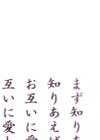 まず知りあ
知りあえば
お互いに愛
互いに愛し